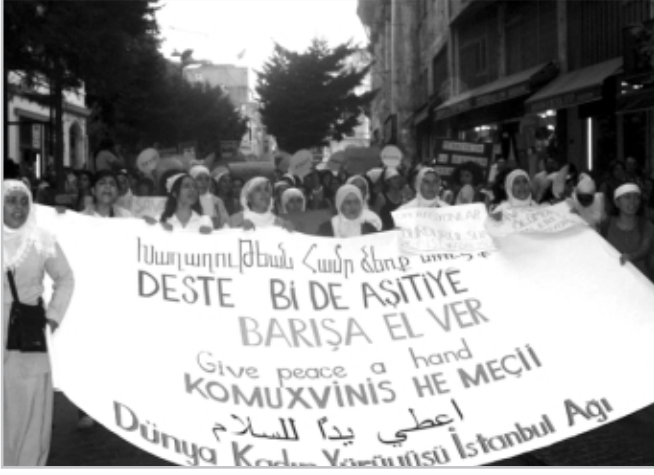 Խաղաղութեան Համար ձեռք
DESTE BİDE AŞİTİYE
BARIŞA EL VER
Give peace a hand
KOMUXVINIS HE MEÇİİ
اعطي يدًا للسلام
Dünya Kadın Yürüyüşü İstanbul Ağı